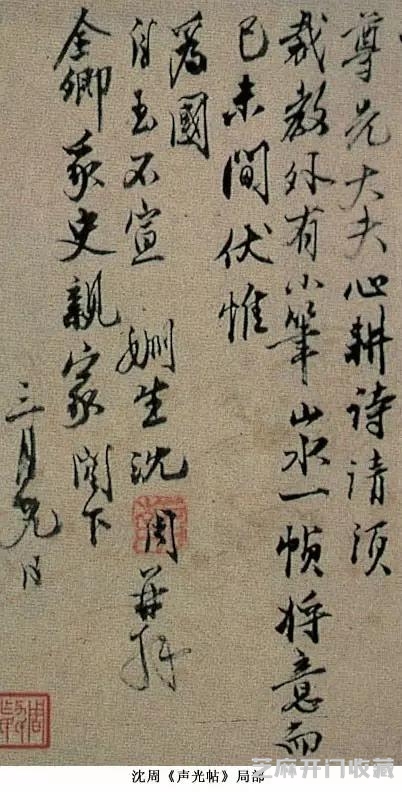 尊先大夫心耕诗请须
裁教外有小筆山水一幀将意而
已未間伏惟
為國
自玉不宣 姻生沈周再拜
全卿冢史親家閣下
三月九日
沈周《声光帖》局部
芝麻开门收藏